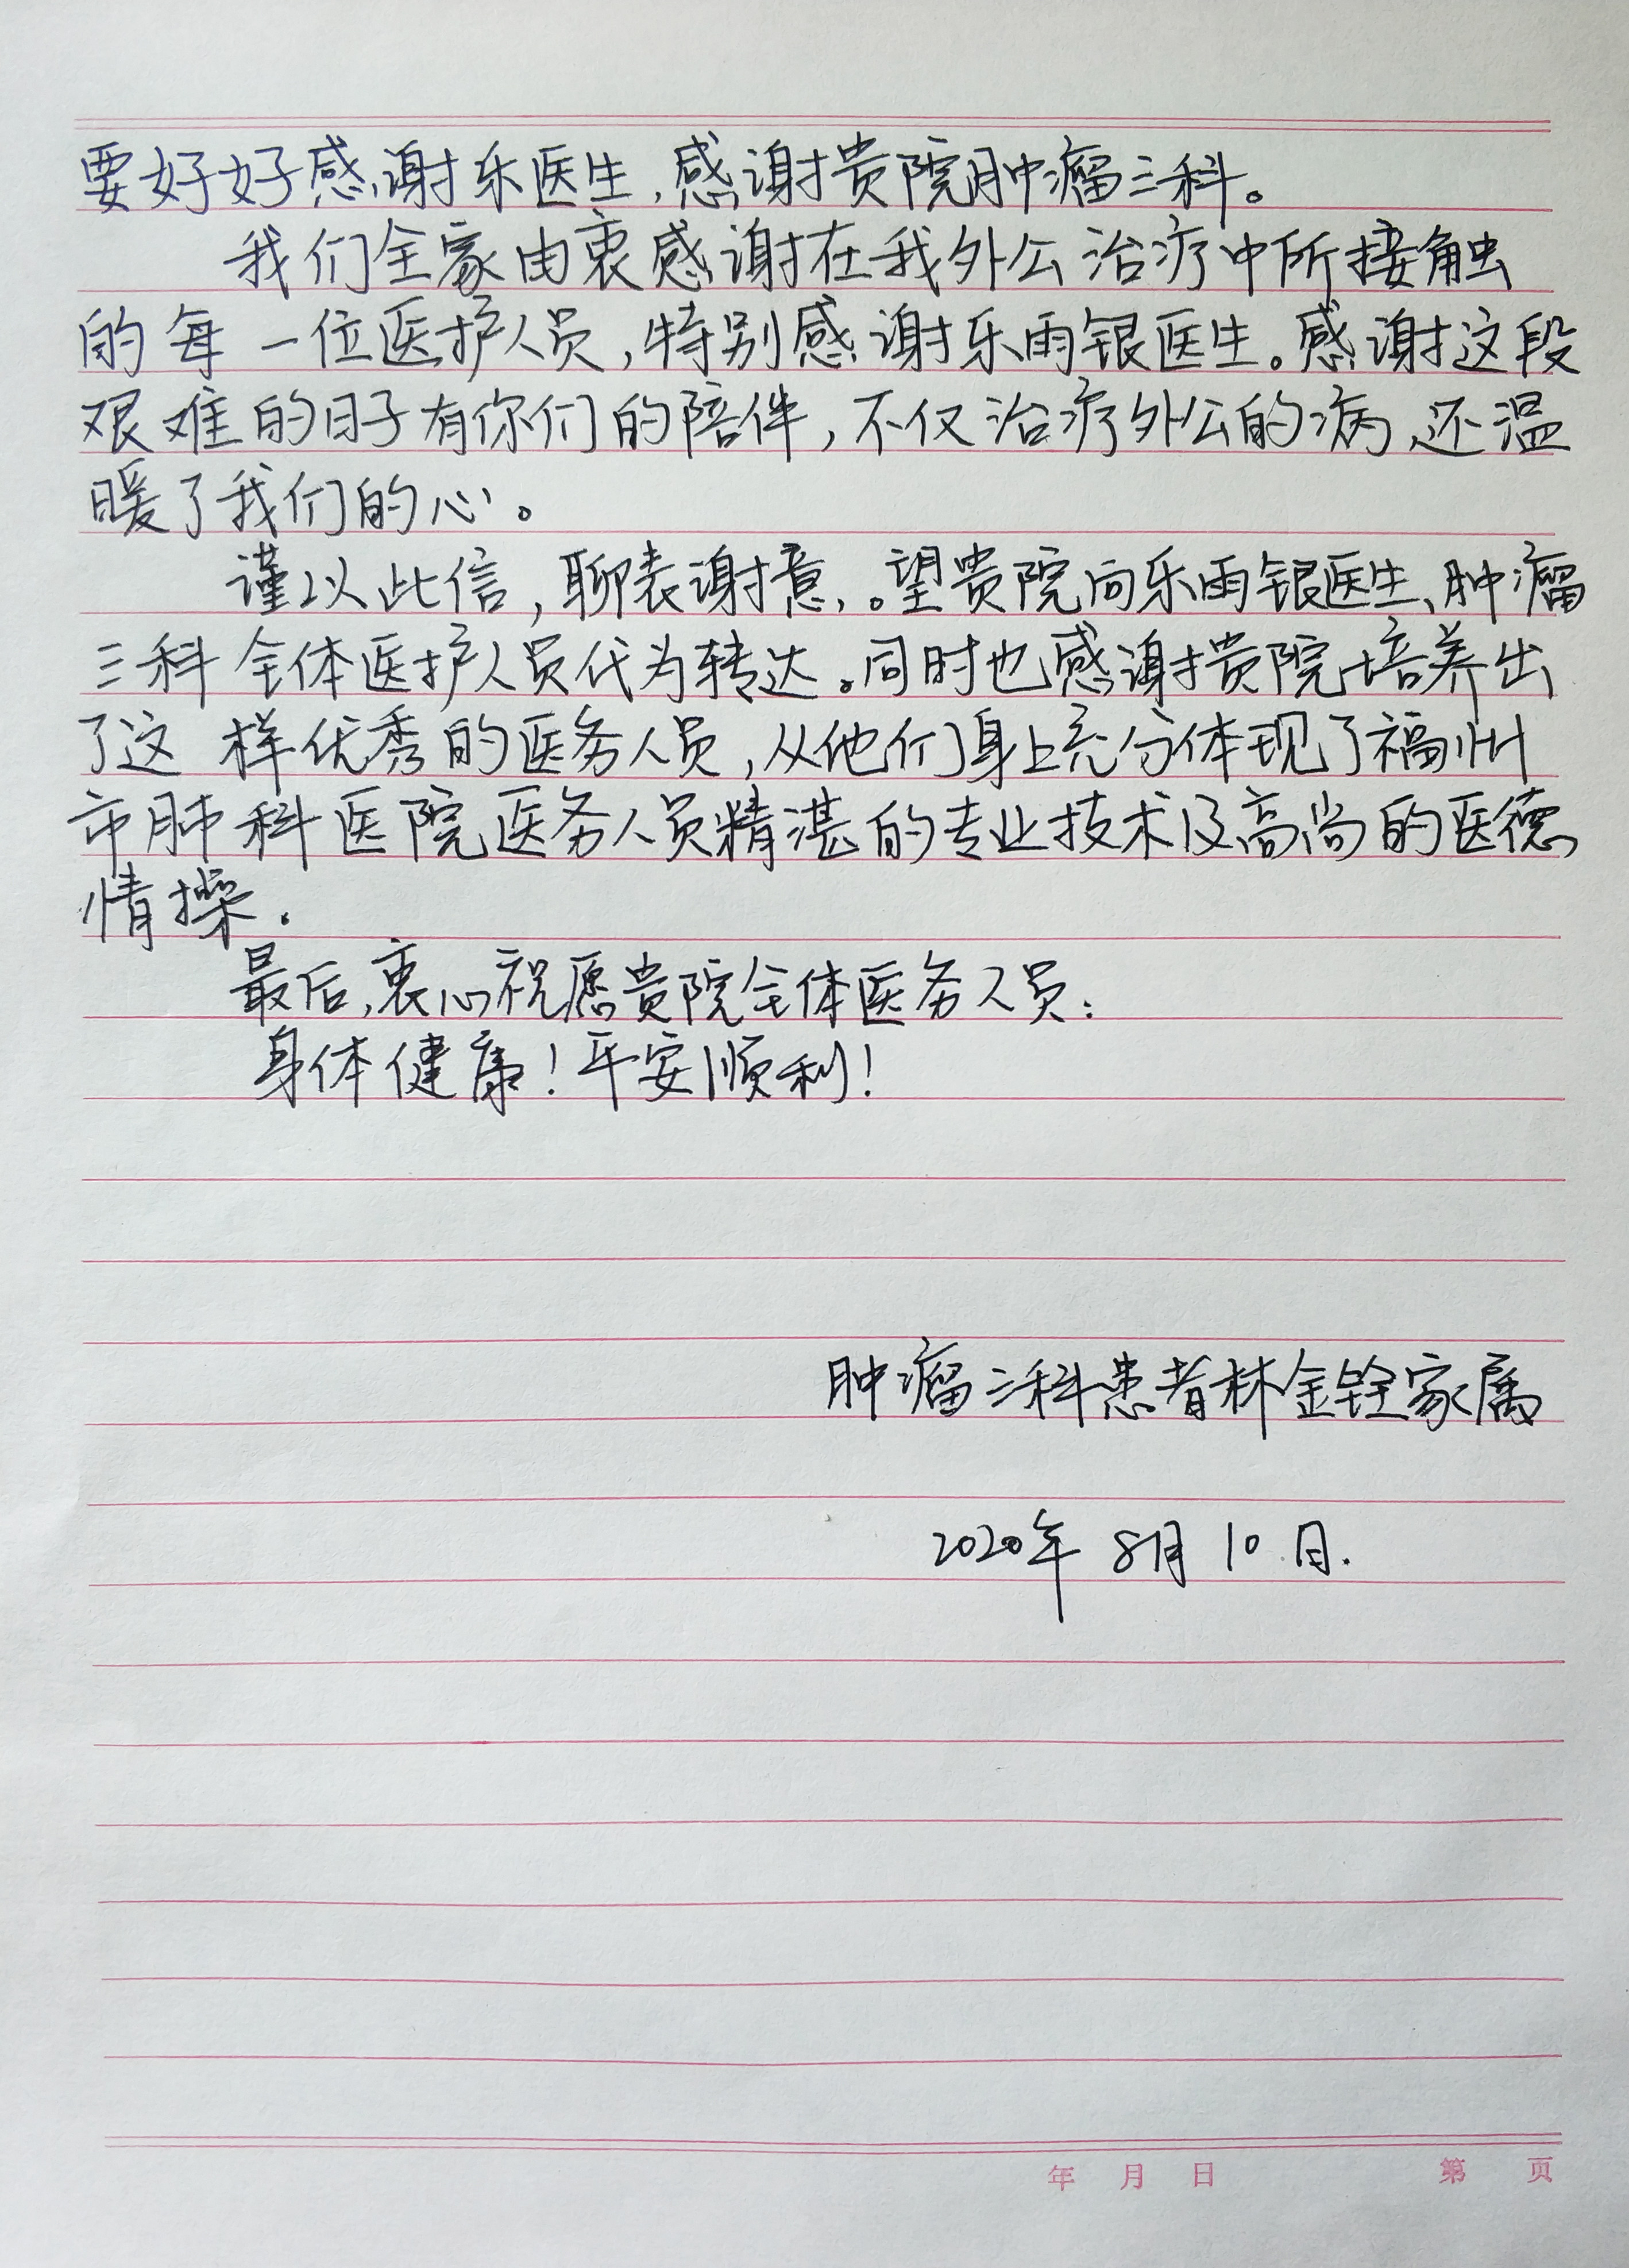 要好好感谢乐医生，感谢贵院肿瘤三科。
我们全家由衷感谢在我外公治疗中所接触
的每一位医护人员，特别感谢乐雨银医生。感谢这段
艰难的日子有你们的陪伴，不仅治疗外公的病，还温
暖了我们的心。
谨以此信，聊表谢意，。望贵院向乐雨银医生、肿瘤
三科全体医护人员代为转达。同时也感谢贵院培养出
了这样优秀的医务人员，从他们身上充分体现了福州
市肺科医院医务人员精湛的专业技术及高尚的医德
情操.
最后，衷心祝愿贵院全体医务人员：
身体健康！平安顺利！
肿瘤三科患者林金铨家属
2020年8月10日.
年 月 日 第 页